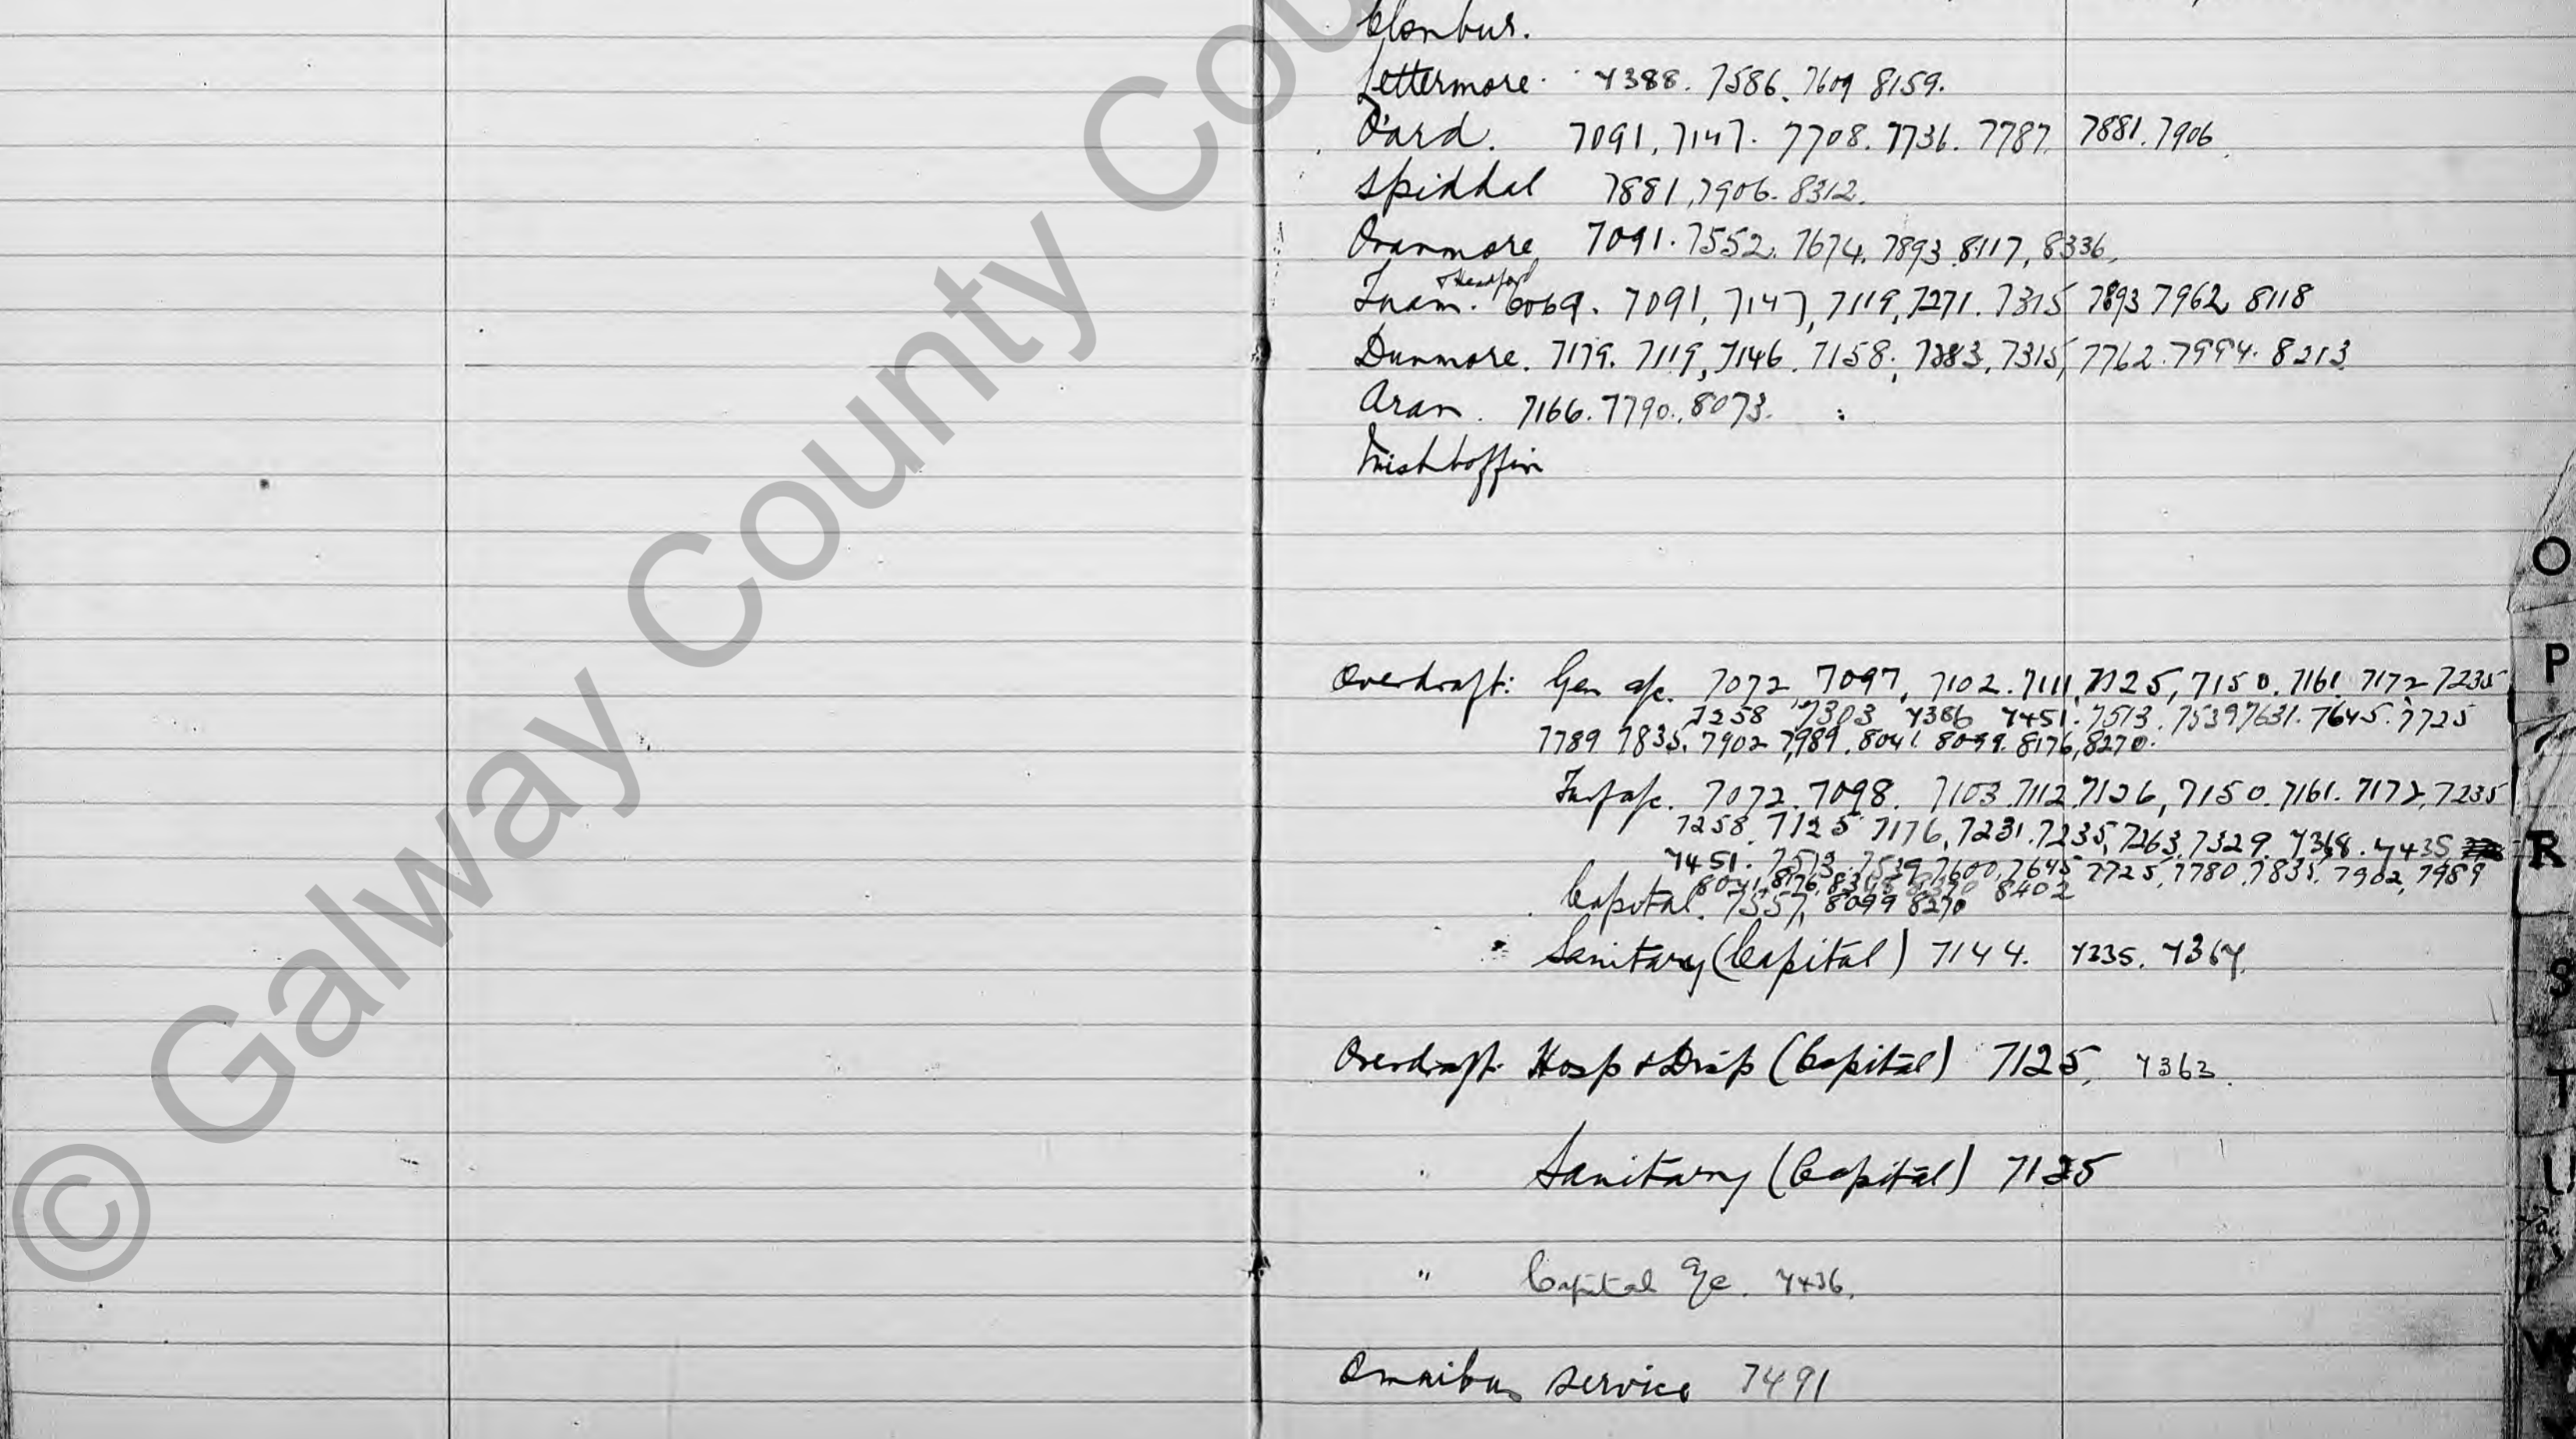 Clonbur.
Lettermore. 7388. 7586. 7609 8159.
O'ard. 7091, 7147. 7708. 7736. 7787. 7881. 7906
Spiddal 7881, 7906. 8312.
Oranmore 7091. 7552. 7674. 7893 8117, 8336.
& Headford
Tuam. 6069. 7091, 7147, 7119, 7271. 7315 7893 7962 8118
Dunmore. 7179. 7119, 7146. 7158. 7383. 7315, 7762. 7994. 8213
Aran. 7166. 7790. 8073.
Inishboffin
Overdraft: Gen a/c. 7072, 7097, 7102. 7111, 7125, 7150. 7161. 7172 7235
7258 7303 7386 7451. 7513. 7539 7631. 7645. 7725
7789 7835. 7902 7989. 8041. 8099. 8176, 8270.
a/c. 7072. 7098. 7103. 7112, 7126, 7150. 7161. 7172, 7235
7258. 7125 7176, 7231. 7235, 7263. 7329. 7368. 7435
7451. 7513. 7539, 7600, 7645 7725, 7780, 7835. 7902, 7989
8041, 8176, 8402
Capital. 7557, 8099 8270
" Sanitary (Capital) 7144. 7235. 7367.
Overdraft. Hosp & Disp (Capital) 7125, 7363.
Sanitary (Capital) 7125
" Capital a/c. 7436.
Omnibus service 7491
O
P
R
S
T
U
W
© Galway County Cou